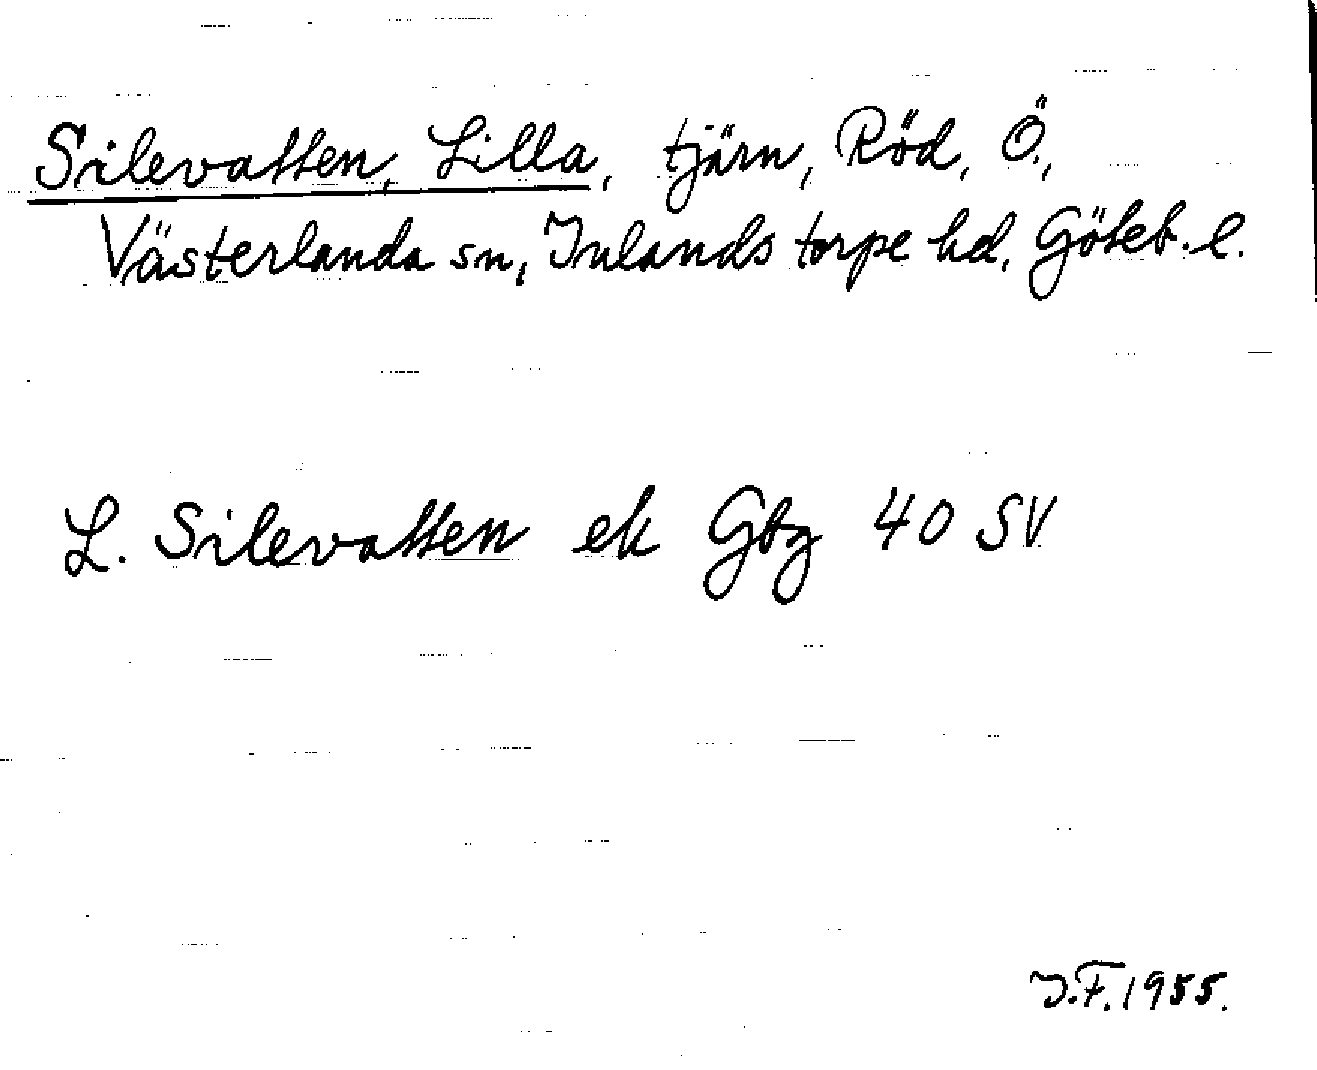 Silevatten, Lilla, tjärn, Röd, Ö.,
Västerlanda sn, Inlands torpe hd, Göteb. l.
L. Silevatten ek Gbg 40 SV
I.F. 1955.